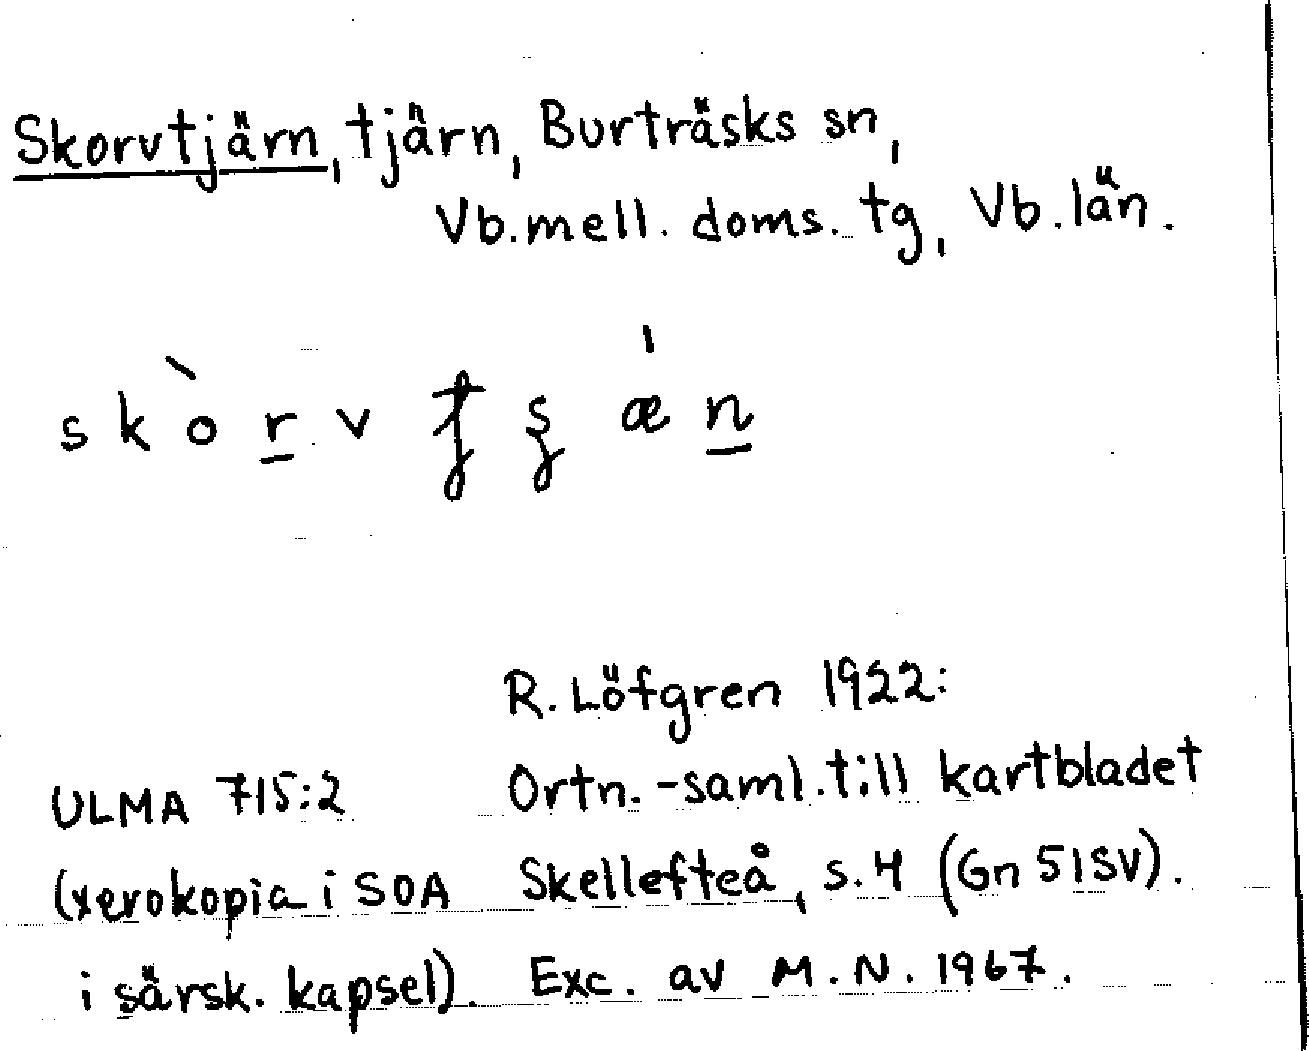 Skorvtjärn, tjärn, Burträsks sn,
Vb. mell. doms. tg, Vb. län.
skòrv
R. Löfgren 1922:
ULMA 715:2 Ortn.-saml. till kartbladet
(xerokopia i SOA Skellefteå, s. 4 (Gn 51SV).
i särsk. kapsel). Exc. av M. N. 1967.